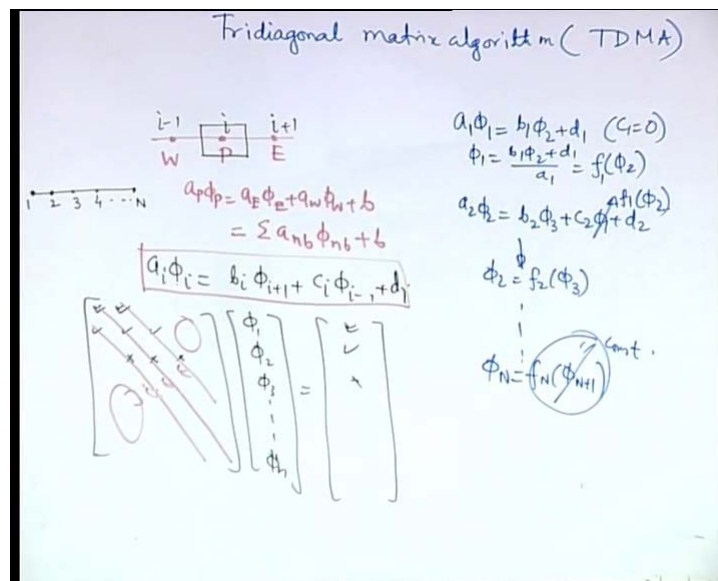 Tridiagonal matrix algorithm (TDMA)
i-1 i i+1
W P E
1 2 3 4 ... N
aPϕP = aEϕE + aWϕW + b
= Σ anb ϕnb + b
aiϕi = bi ϕi+1 + ci ϕi-1 + di
ϕ1
ϕ2
ϕ3
ϕn
=
a1ϕ1 = b1ϕ2 + d1 (c1=0)
ϕ1 = b1ϕ2 + d1 / a1 = f1(ϕ2)
f1(ϕ2)
a2ϕ2 = b2ϕ3 + c2ϕ1 + d2
ϕ2 = f2(ϕ3)
const.
ϕN = fN(ϕN+1)